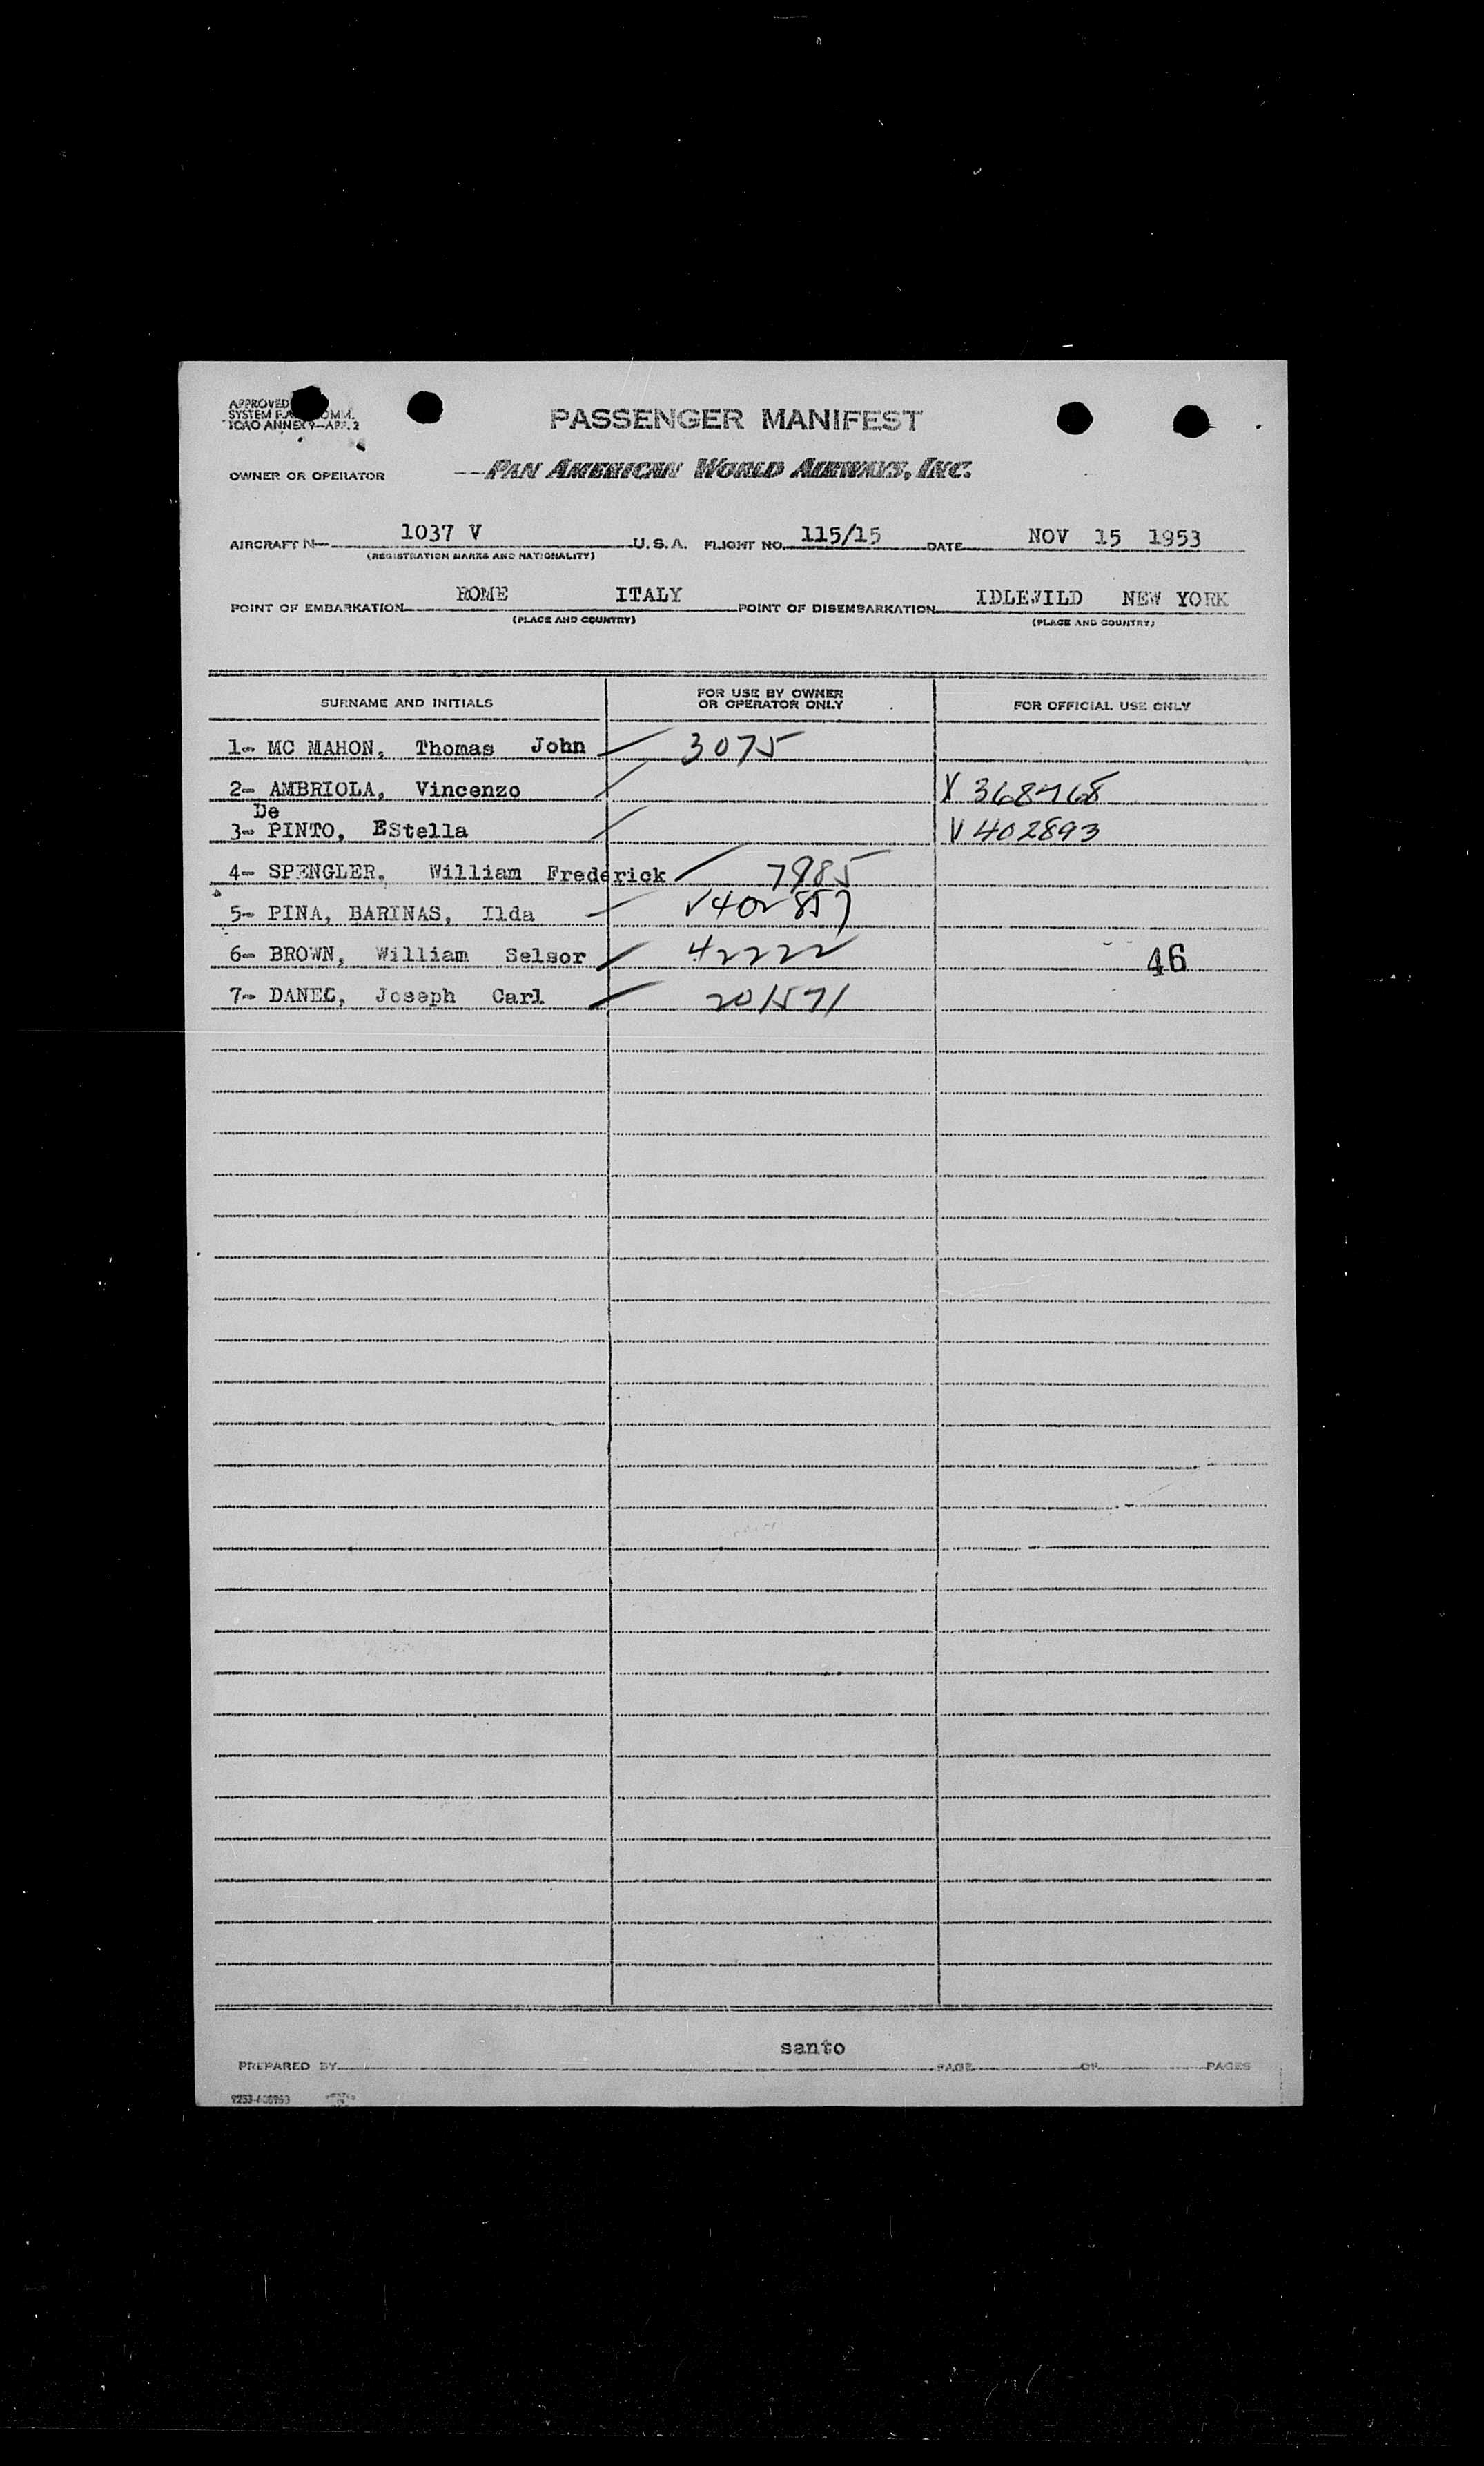 APPROVED
SYSTEM COMM.
ICAO ANNEX 9—APP. 2
PASSENGER MANIFEST
OWNER OR OPERATOR PAN AMERICAN WORLD AIRWAYS, INC.
AIRCRAFT N 1037 V U.S.A. FLIGHT NO. 115/15 DATE NOV 15 1953
(REGISTRATION MARKS AND NATIONALITY)
POINT OF EMBARKATION ROME ITALY POINT OF DISEMBARKATION IDLEWILD NEW YORK
(PLACE AND COUNTRY) (PLACE AND COUNTRY)
SURNAME AND INITIALS FOR USE BY OWNER OR OPERATOR ONLY FOR OFFICIAL USE ONLY
1- MC MAHON, Thomas John 3075
2- AMBRIOLA, Vincenzo V 368768
De
3- PINTO, EStella V 402893
4- SPENGLER, William Frederick 7985
5- PINA, BARINAS, Ilda V402857
6- BROWN, William Selsor 42222 46
7- DANEC, Joseph Carl 201571
santo
PREPARED BY PAGE OF PAGES